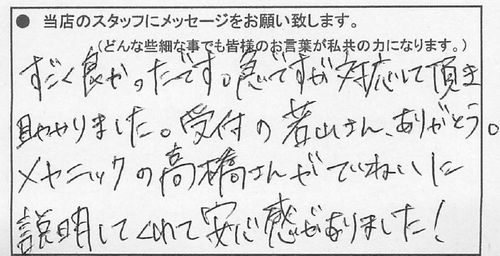 ● 当店のスタッフにメッセージをお願い致します。
(どんな些細な事でも皆様のお言葉が私共の力になります。)
すごく良かったです。急ですが対応して頂き
助かりました。受付の若山さん、ありがとう。
メカニックの高橋さんがていねいに
説明してくれて安心感がありました!